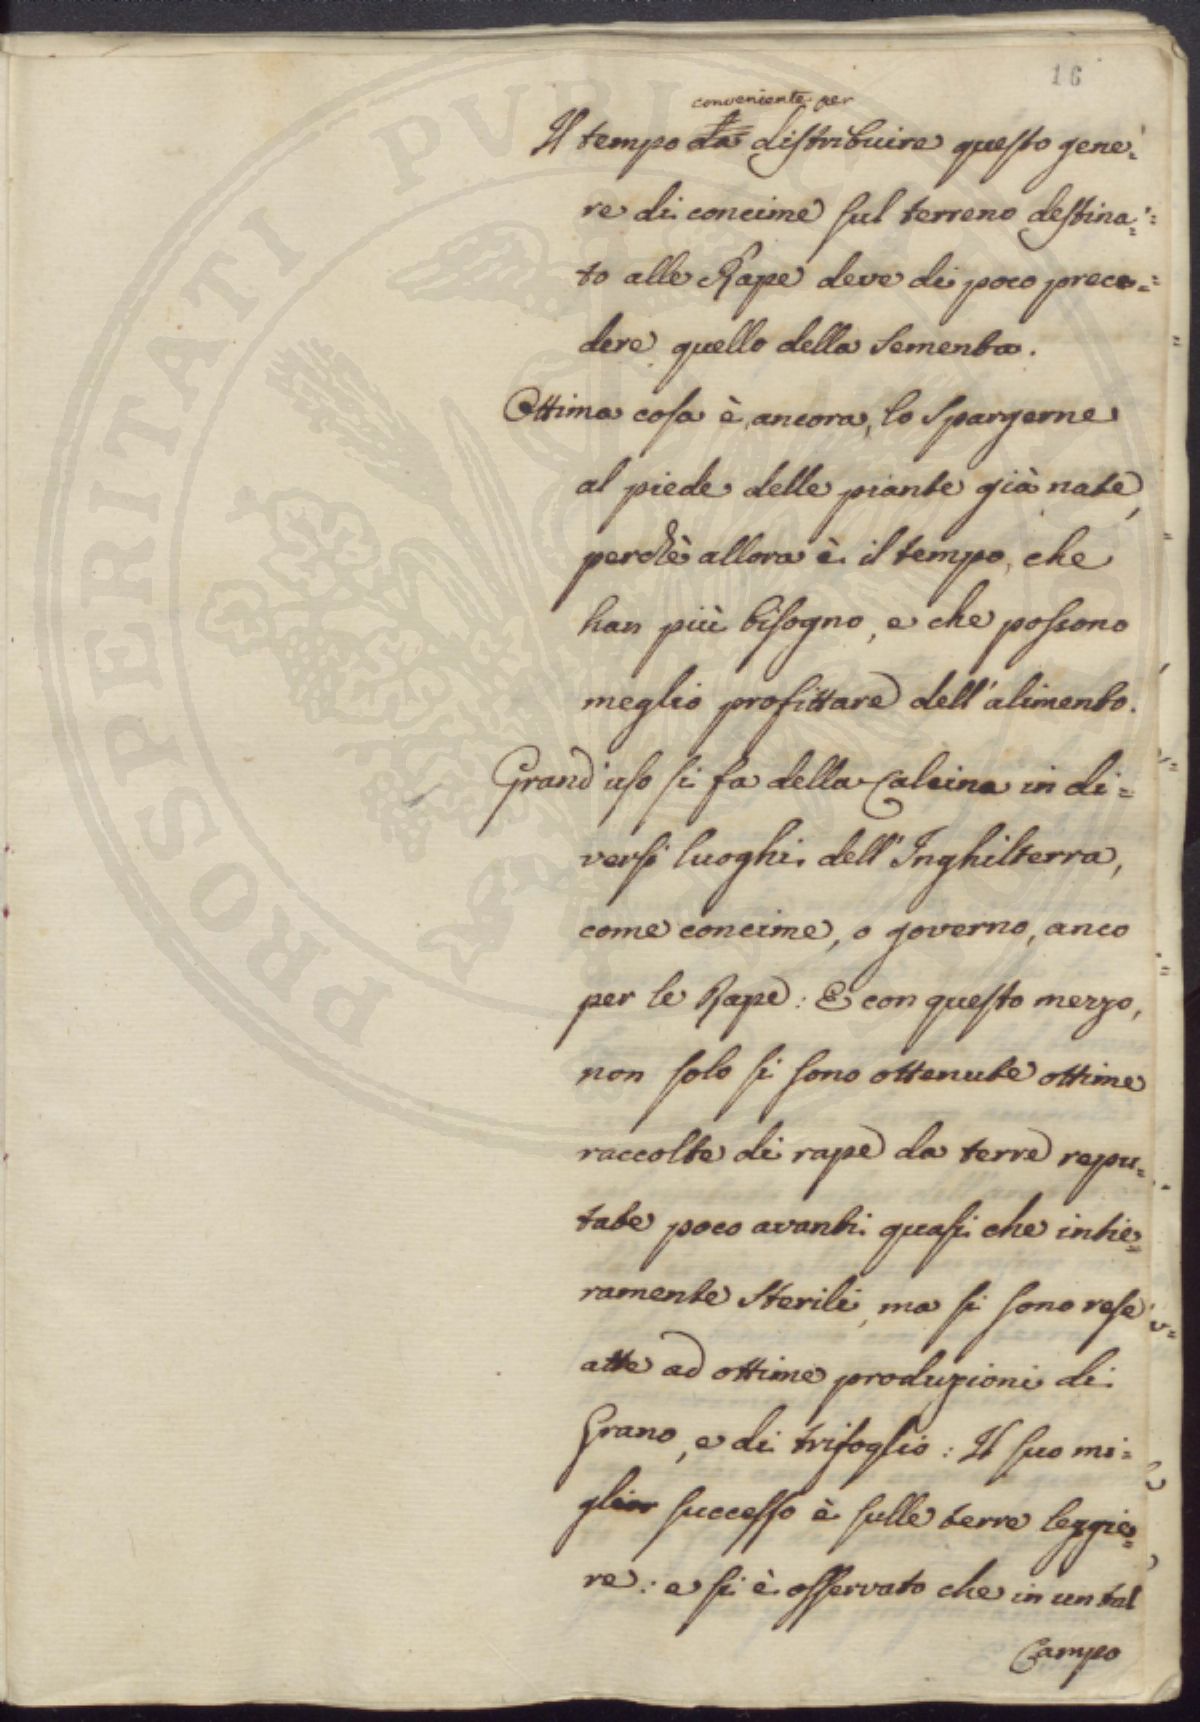 16
conveniente per
Il tempo da distribuire questo gene=
re di concime sul terreno destina=
to alle Rape deve di poco prece=
dere quello della Sementa.
Ottima cosa è, ancora, lo Spargerne
al piede delle piante già nate,
perchè allora è il tempo, che
han più bisogno, e che possono
meglio profittare dell'alimento.
Grand'uso si fa della Calcina in di=
versi luoghi dell'Inghilterra,
come concime, o governo, anco
per le Rape: E con questo mezzo,
non solo si sono ottenute ottime
raccolte di rape da terre repu=
tate poco avanti quasi che intie=
ramente Sterili, ma si sono rese
atte ad ottime produzioni di
Grano, e di trifoglio: Il suo mi=
glior successo è sulle terre leggie=
re: e si è osservato che in un tal
Campo
PROSPERITATI PVBLICAE